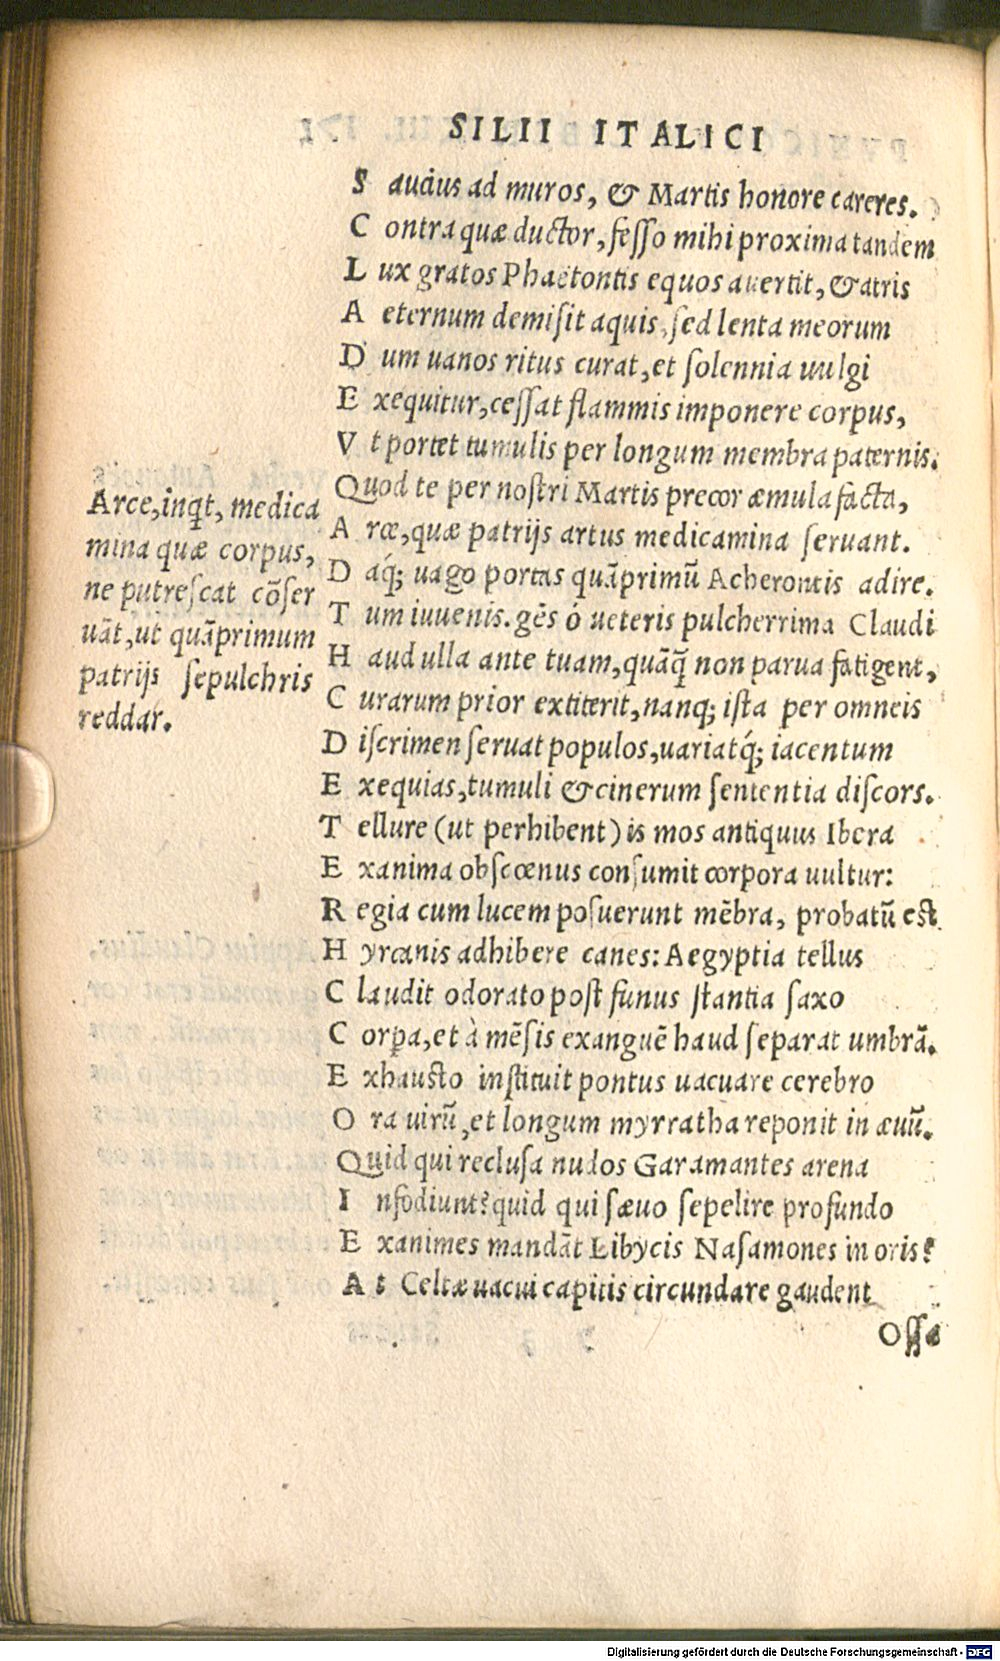 SILII ITALICI
S aucius ad muros, & Martis honore careres.
C ontra quæ ductor, fesso mihi proxima tandem
L ux gratos Phaetontis equos auertit, & atris
A eternum demisit aquis, sed lenta meorum
D um uanos ritus curat, et solennia uulgi
E xequitur, cessat flammis imponere corpus,
V t portet tumulis per longum membra paternis.
Quod te per nostri Martis precor æmula facta,
A rce, quæ patrijs artus medicamina seruant.
D aq́; uago portas quāprimū Acherontis adire.
T um iuuenis. gēs ó ueteris pulcherrima Claudi
H aud ulla ante tuam, quāq̄ non parua fatigent,
C urarum prior extiterit, nanq; ista per omneis
D iscrimen seruat populos, uariatq́; iacentum
E xequias, tumuli & cinerum sententia discors.
T ellure (ut perhibent) is mos antiquus Ibera
E xanima obscœnus consumit corpora uultur:
R egia cum lucem posuerunt mēbra, probatū est
H yrcanis adhibere canes: Aegyptia tellus
C laudit odorato post funus stantia saxo
C orpa, et à mēsis exanguē haud separat umbrā.
E xhausto instituit pontus uacuare cerebro
O ra uirū, et longum myrratha reponit in æuū.
Quid qui reclusa nudos Garamantes arena
I nfodiunt? quid qui sæuo sepelire profundo
E xanimes mandāt Libycis Nasamones in oris?
A t Celtæ uacui capitis circundare gaudent
Ossa
Arce, inqt, medica
mina quæ corpus,
ne putrescat cōser
uāt, ut quāprimum
patrijs sepulchris
reddar.
Digitalisierung gefördert durch die Deutsche Forschungsgemeinschaft - DFG